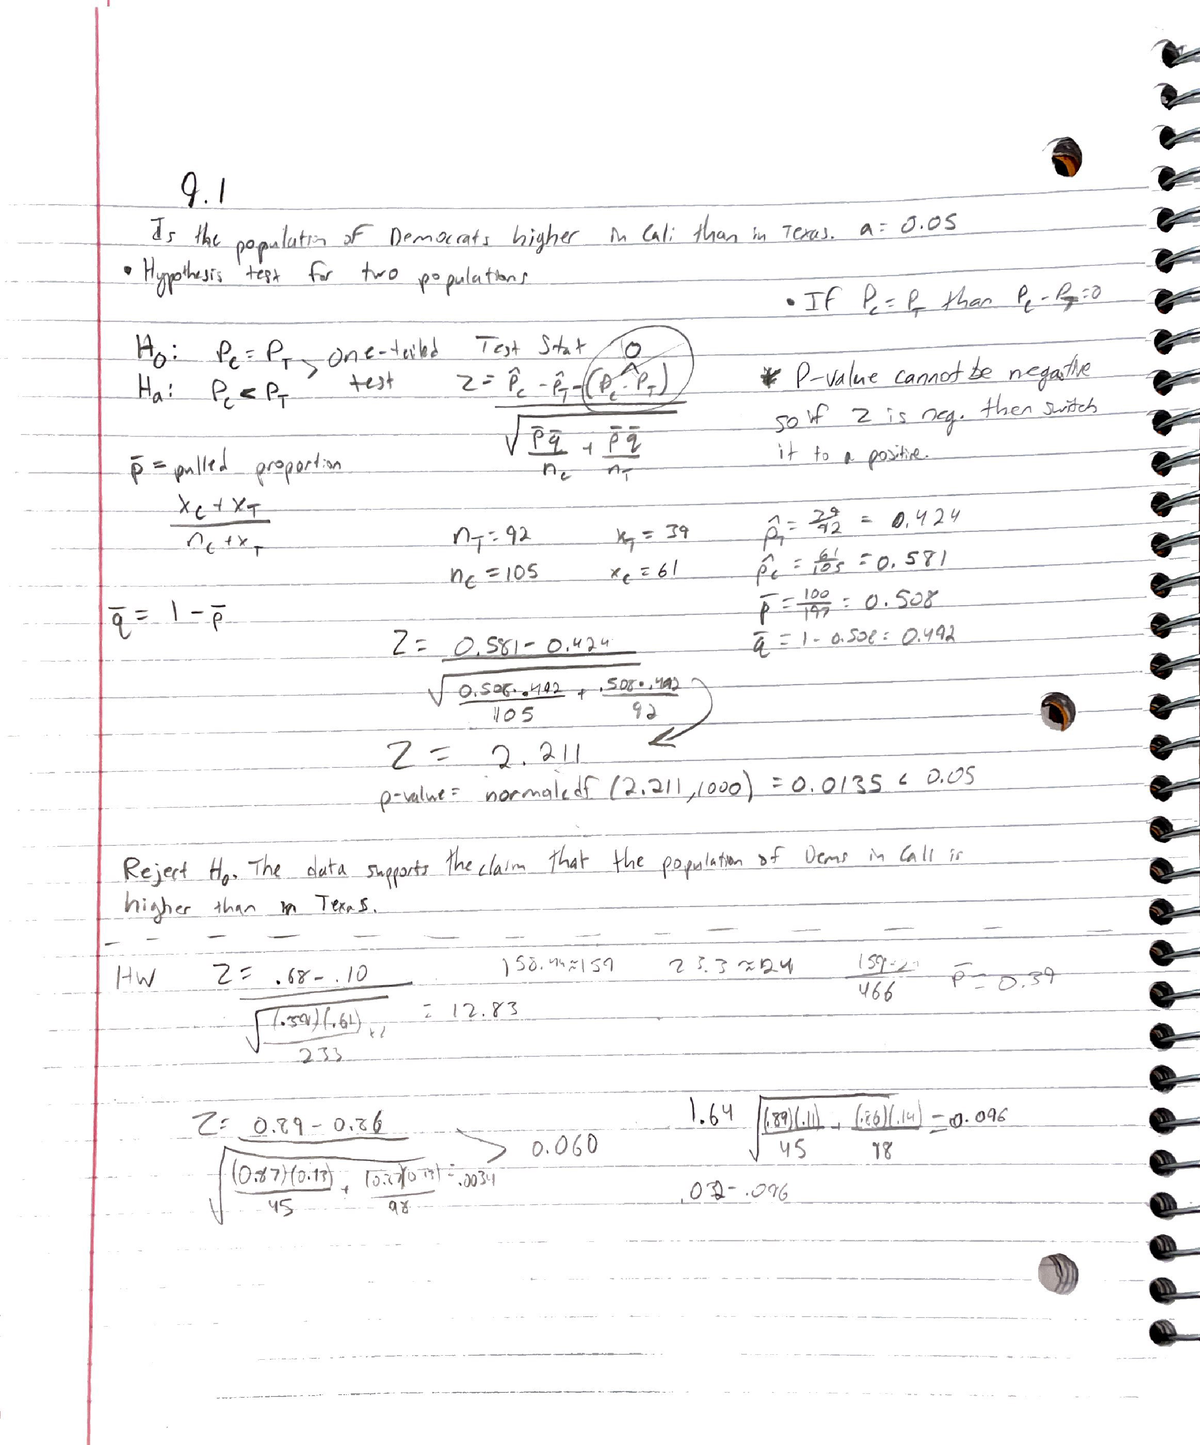 9.1
Is the populatin of Democrats higher in Cali than in Texas. a = 0.05
• Hypothesis test for two populations
• If P_c = P_T than P_c - P_T = 0
H₀: P_c = P_T > one-tailed Test Stat 0
Ha: P_c < P_T test Z = p̂_c - p̂_T - (P_c - P_T)
√ p̄q̄/n_c + p̄q̄/n_T
* P-value cannot be negative
so if Z is neg. then switch
it to a positive.
p̄ = pulled proportion
x_c + x_T
n_c + x_T
q̄ = 1 - p̄
n_T = 92 x_T = 39 p̂_T = 39/92 = 0.424
n_c = 105 x_c = 61 p̂_c = 61/105 = 0.581
p̄ = 100/197 = 0.508
q̄ = 1 - 0.508 = 0.492
Z = 0.581 - 0.424
√ 0.508 · .492/105 + .508 · .492/92
Z = 2.211
p-value = normalcdf (2.211, 1000) = 0.0135 < 0.05
Reject H₀. The data supports the claim that the population of Dems in Cali is
higher than in Texas.
HW Z = .68 - .10 158.44 ≈ 159 23.3 ≈ 24 466 p̄ = 0.39
√ (.39)(.61)/233 = 12.83
Z = 0.89 - 0.86
√ (0.87)(0.13)/45 + (0.87)(0.13)/98 = .0034
0.060
1.64 √ (.89)(.11)/45 + (.86)(.14)/98 = 0.096
.03 - .096